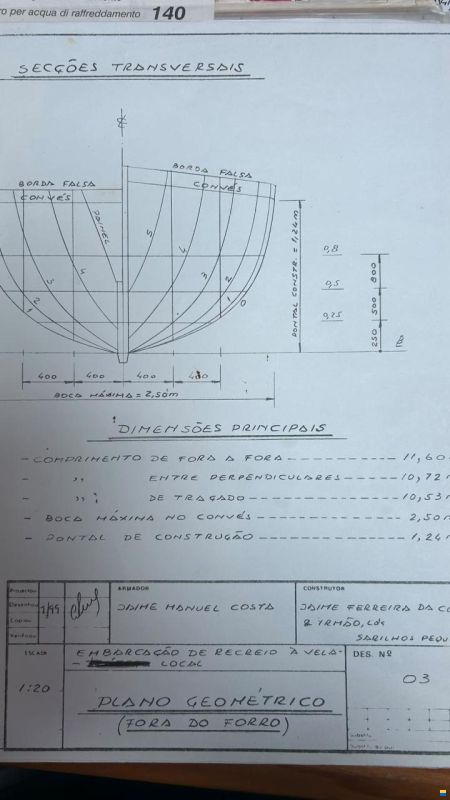 ro per acqua di raffreddamento 140
SECÇÕES TRANSVERSAIS
BORDA FALSA
CONVÉS
BORDA FALSA
CONVÉS
PAINEL
5
4
3
2
1
0
4
3
2
1
PONTAL CONSTR. = 1,24 m
0,8
0,5
0,25
800
500
250
400 400 400 400
BOCA MÁXIMA = 2,50m
DIMENSÕES PRINCIPAIS
- COMPRIMENTO DE FORA A FORA ---------- 11,60
- " ENTRE PERPENDICULARES ---------- 10,72
- " DE TRAÇADO ---------- 10,53
- BOCA MÁXIMA NO CONVÉS ---------- 2,50
- PONTAL DE CONSTRUÇÃO ---------- 1,24
Projectou
Desenhou
Copiou
Verificou
ARMADOR
JAIME MANUEL COSTA
CONSTRUTOR
JAIME FERREIRA DA CO
& IRMÃO, Lda
SARILHOS PEQU
ESCALA
1:20
EMBARCAÇÃO DE RECREIO À VELA-
LOCAL
PLANO GEOMÉTRICO
(FORA DO FORRO)
DES. Nº
03